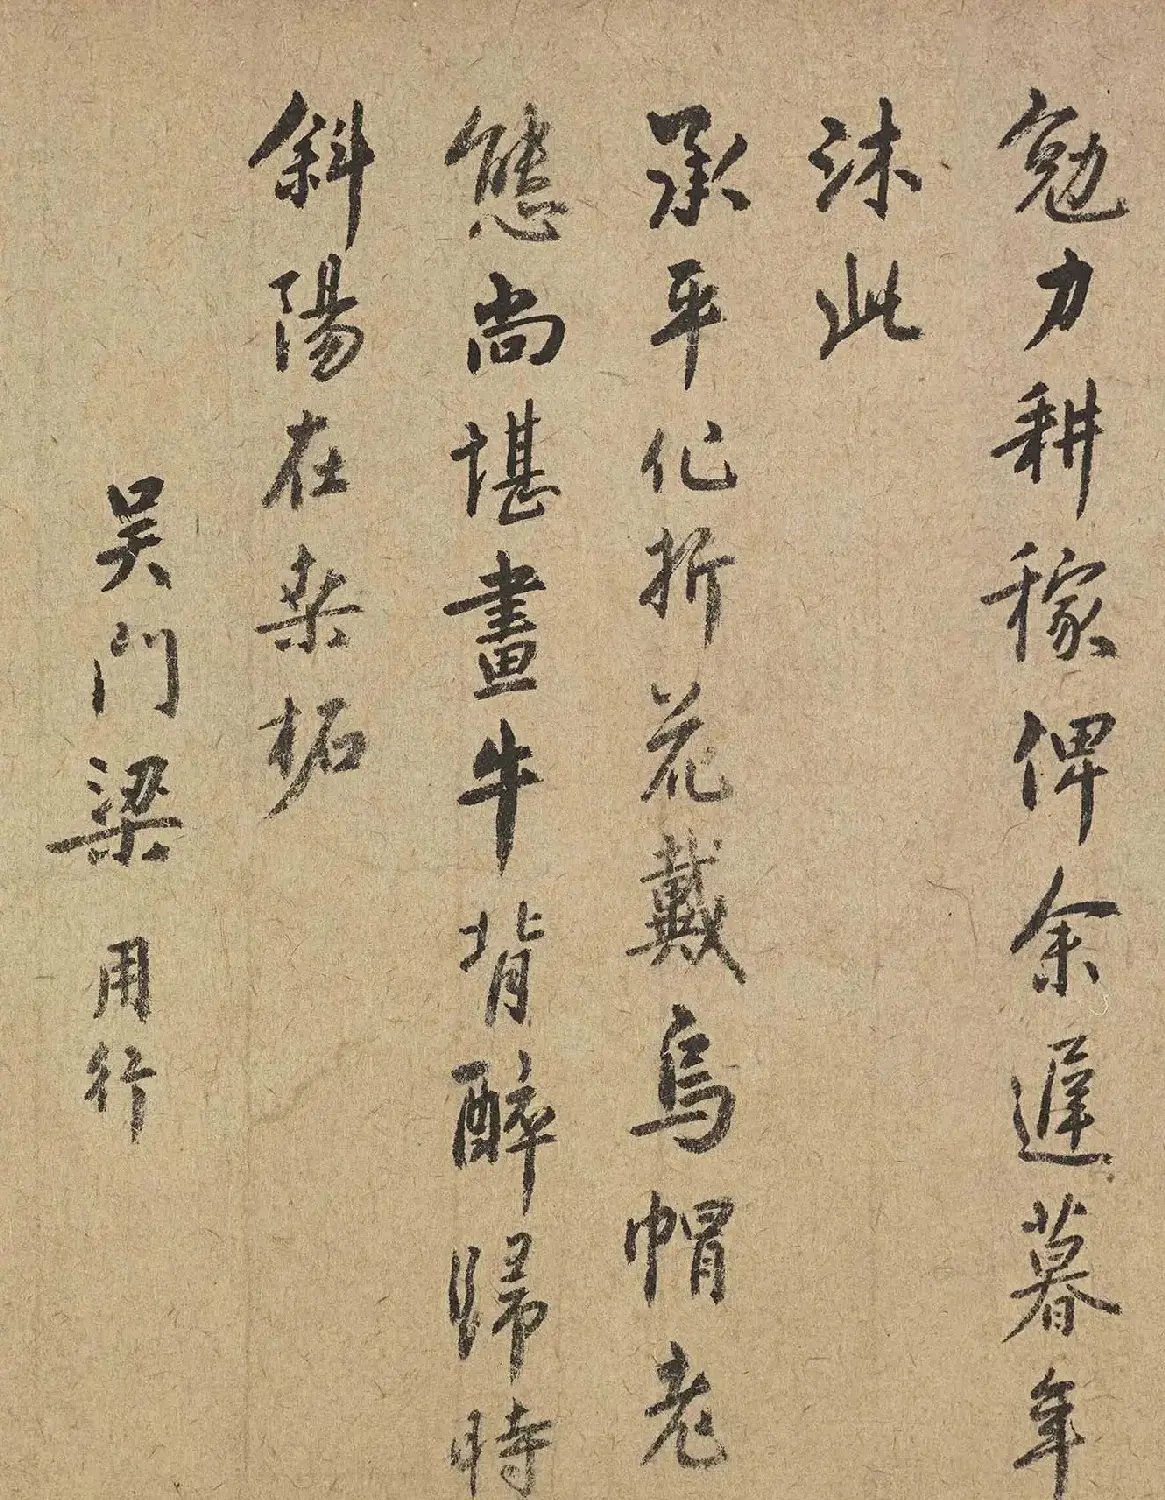 勉力耕稼俾余遲暮年
沐此
承平化折花戴烏帽老
態尚堪畫牛背醉歸時
斜陽在桑柘
吳門梁用行